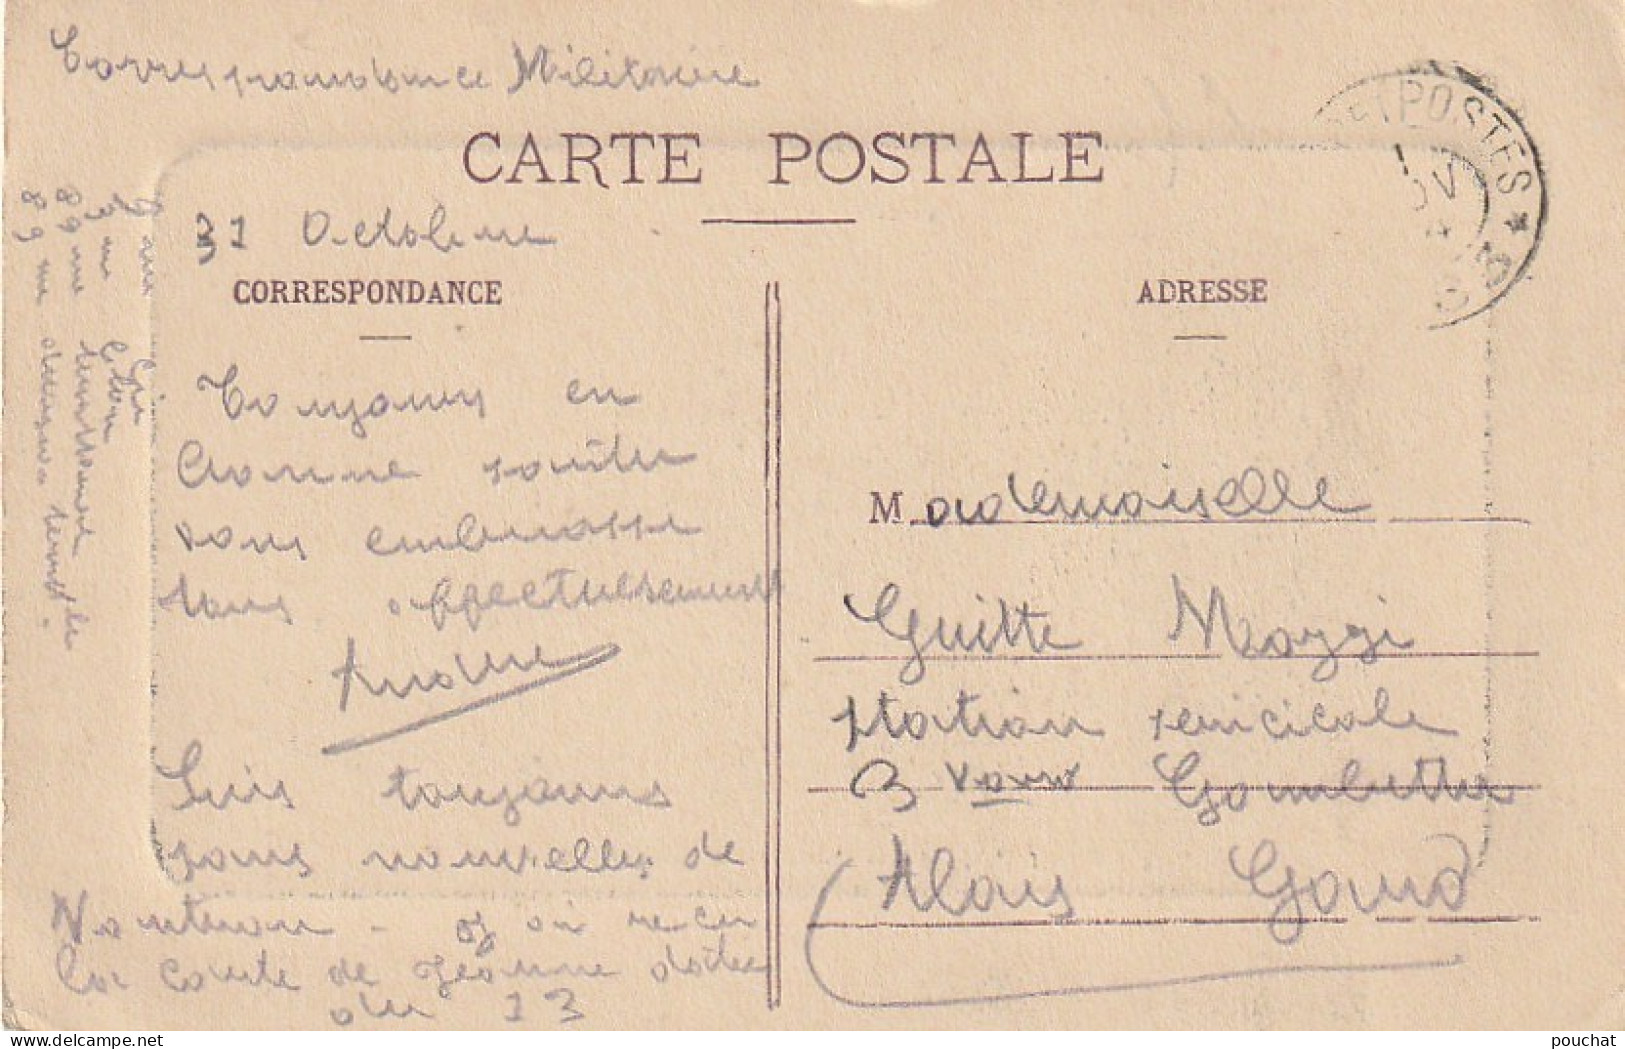 Correspondance Militaire
CARTE POSTALE
POSTES
31 Octobre
CORRESPONDANCE
ADRESSE
Toujours en
bonne santée
vous embrasse
tous affectueusement
Andrée
Suis toujours
sans nouvelles de
Nontron - J'ai recu
la carte de Jeanne datée
du 13
Mademoiselle
Guitte Mazzi
Station
3 Gambetta
Alais Gard
89 me territoriale
89 me
pouchat